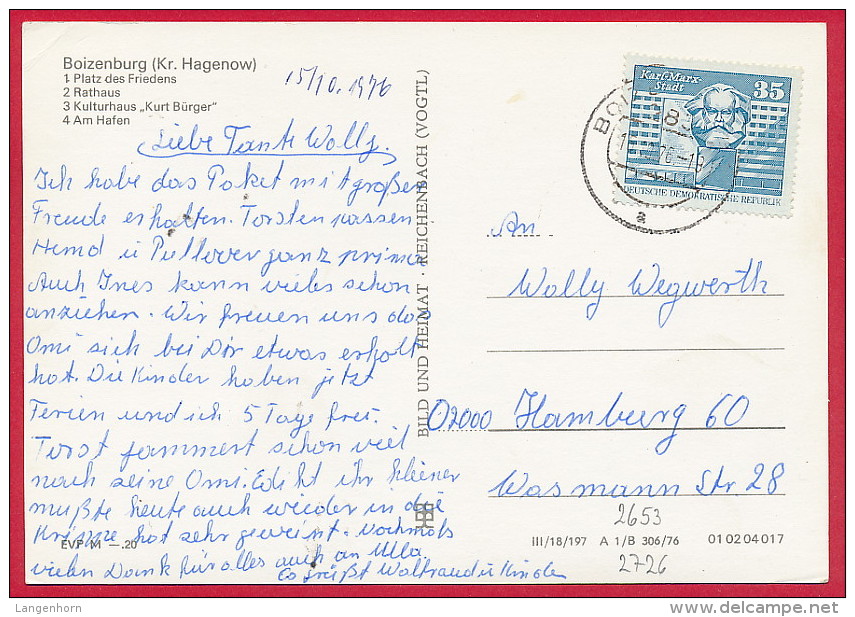 Boizenburg (Kr. Hagenow)
1 Platz des Friedens
2 Rathaus
3 Kulturhaus „Kurt Bürger"
4 Am Hafen
15/10. 1976
Liebe Tante Wolly.
Ich habe das Paket mit großer
Freude erhalten. Torsten passen
Hemd u Pullover ganz prima
Auch Ines kann vieles schon
anziehen. Wir freuen uns das
Omi sich bei Dir etwas erholt
hat. Die Kinder haben jetzt
Ferien und ich 5 Tage frei.
Torst jammert schon viel
nach seine Omi. Edikt ihr kleiner
mußte heute auch wieder in die
Krippe hat sehr geweint. Nochmals
vielen Dank für alles auch an Ulla
Es grüßt Waltraud u Kinder
EVP M —.20
BILD UND HEIMAT · REICHENBACH (VOGTL)
Karl-Marx-
Stadt
35
DEUTSCHE DEMOKRATISCHE REPUBLIK
a
An
Wolly Wegwerth
02000 Hamburg 60
Wasmann Str 28
2653
III/18/197 A 1/B 306/76 01 02 04 017
2726
Langenhorn
delcampe.net